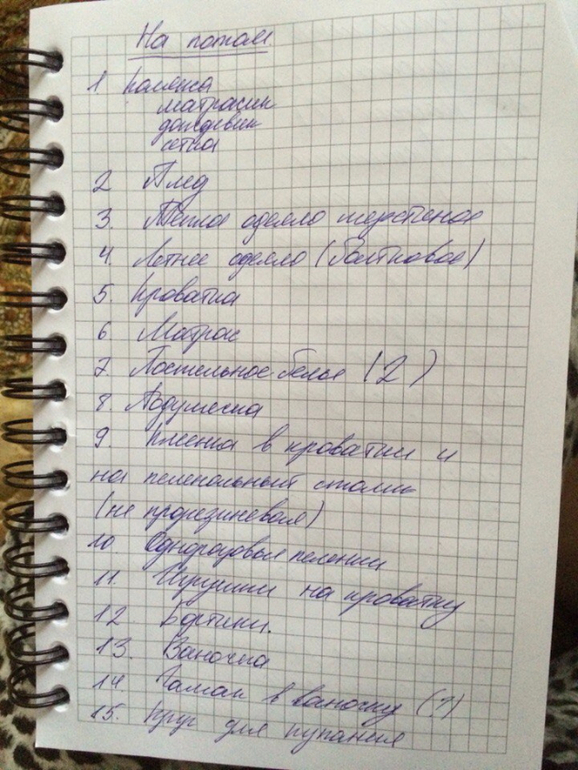 На потом
1 Коляска
матрасик
дождевик
сетка
2 Плед
3. Тёплое одеяло шерстеное
4. Летнее одеяло (байковое)
5. Кроватка
6 Матрас
7 Постельное белье (2)
8 Подушечка
9 Клеенка в кроватки и
на пеленальный столик
(не прорезиневая)
10 Одноразовые пеленки
11. Игрушки на кроватку
12 Бортики.
13. Ваночка
14. Гамак в ваночку (?)
15. Круг для купания